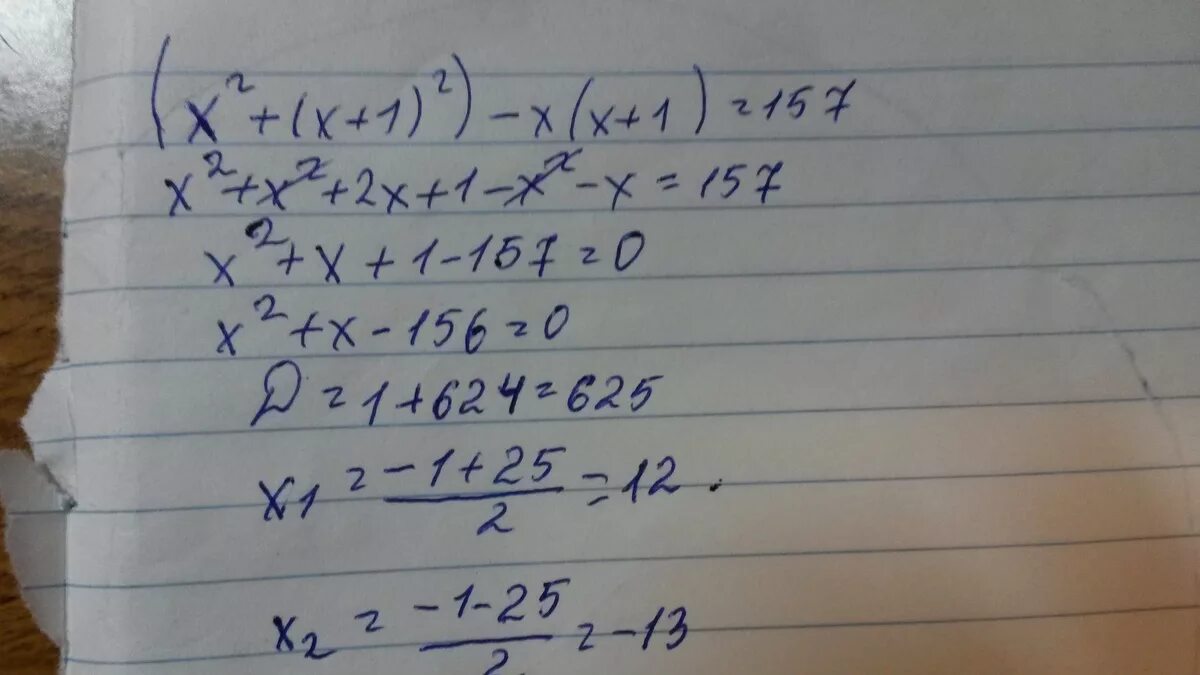 (x²+(x+1)²)-x(x+1)=157
x²+x²+2x+1-x²-x=157
x²+x+1-157=0
x²+x-156=0
D=1+624=625
x1=(-1+25)/2=12.
x2=(-1-25)/2=-13